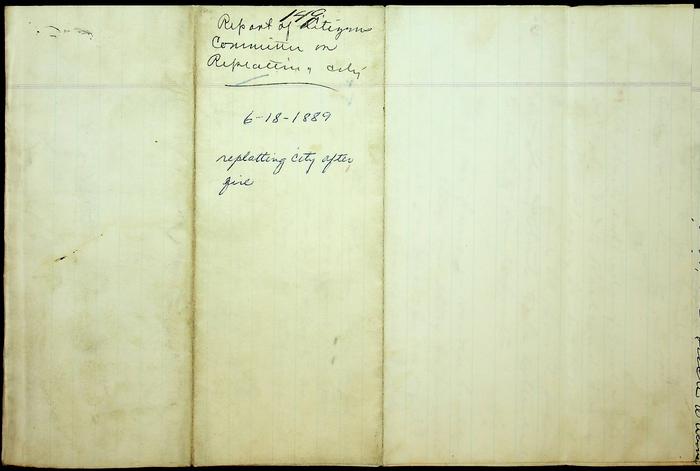 149
Report of Citizens
Committee on
Replatting city
6-18-1889
replatting city after
fire